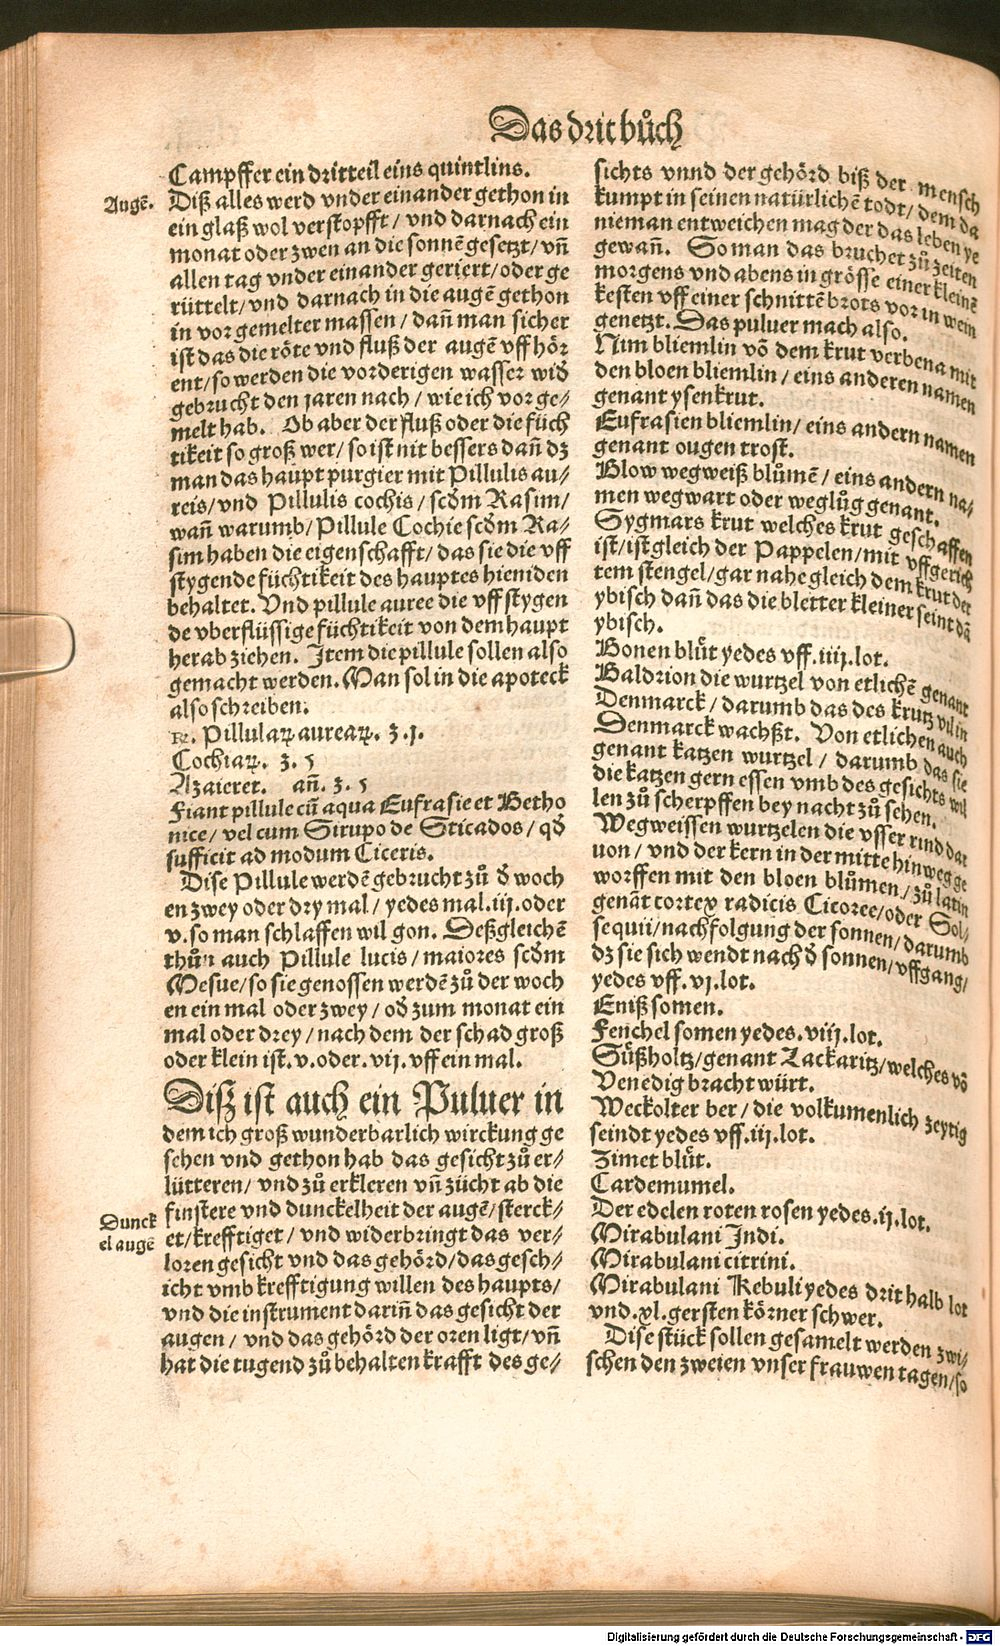 Das drit bůch
Campffer ein dritteil eins quintlins.
Augē.
Diß alles werd vnder einander gethon in
ein glaß wol verstopfft / vnd darnach ein
monat oder zwen an die sonnē gesetzt / vn̄
allen tag vnder einander geriert / oder ge
rüttelt / vnd darnach in die augē gethon
in vor gemelter massen / dan̄ man sicher
ist das die röte vnd fluß der augē vff hör
ent / so werden die vorderigen wasser wid̄
gebrucht den jaren nach / wie ich vor ge⸗
melt hab. Ob aber der fluß oder die füch
tikeit so groß wer / so ist nit bessers dan̄ dz
man das haupt purgier mit Pillulis au⸗
reis / vnd Pillulis cochis / scd̄m Rasim /
wan̄ warumb / Pillule Cochie scd̄m Ra⸗
sim haben die eigenschafft / das sie die vff
stygende füchtikeit des hauptes hieniden
behaltet. Vnd pillule auree die vff stygen
de vberflüssige füchtikeit von dem haupt
herab ziehen. Item die pillule sollen also
gemacht werden. Man sol in die apoteck
also schreiben.
℞. Pillulaꝝ aureaꝝ. ʒ. j.
Cochiaꝝ. ʒ. 5
Azaieret. an̄. ʒ. 5
Fiant pillule cū aqua Eufrasie et Betho
nice / vel cum Sirupo de Sticados / qd̄
sufficit ad modum Ciceris.
Dise Pillule werdē gebrucht zů d̄ woch
en zwey oder dry mal / yedes mal. iij. oder
v. so man schlaffen wil gon. Deßgleichē
thůn auch Pillule lucis / maiores scd̄m
Mesue / so sie genossen werdē zů der woch
en ein mal oder zwey / od̄ zum monat ein
mal oder drey / nach dem der schad groß
oder klein ist. v. oder. vij. vff ein mal.
Diß ist auch ein Puluer in
dem ich groß wunderbarlich wirckung ge
sehen vnd gethon hab das gesicht zů er⸗
lütteren / vnd zů erkleren vn̄ zücht ab die
Dunck
el augē
finstere vnd dunckelheit der augē / sterck⸗
et / krefftiget / vnd widerbringt das ver⸗
loren gesicht vnd das gehörd / das gesch⸗
icht vmb krefftigung willen des haupts /
vnd die instrument darin̄ das gesicht der
augen / vnd das gehörd der oren ligt / vn̄
hat die tugend zů behalten krafft des ge⸗
sichts vnnd der gehörd biß der mensch
kumpt in seinen natürlichē todt / dem da
nieman entweichen mag der das leben ye
gewan̄. So man das bruchet zů zeiten
morgens vnd abens in grösse einer kleinē
kesten vff einer schnittē brots vor in wein
genetzt. Das puluer mach also.
Nim bliemlin vō dem krut verbena mit
den bloen bliemlin / eins anderen namen
genant ysenkrut.
Eufrasien bliemlin / eins andern namen
genant ougen trost.
Blow wegweiß blůmē / eins andern na⸗
men wegwart oder weglůg genant.
Sygmars krut welches krut geschaffen
ist / ist gleich der Pappelen / mit vffgerich
tem stengel / gar nahe gleich dem krut der
ybisch dan̄ das die bletter kleiner seint dā
ybisch.
Bonen blůt yedes vff. iiij. lot.
Baldrion die wurtzel von etlichē genant
Denmarck / darumb das des krutz vil in
Denmarck wachßt. Von etlichen auch
genant katzen wurtzel / darumb das sie
die katzen gern essen vmb des gesichts wil
len zů scherpffen bey nacht zů sehen.
Wegweissen wurtzelen die vsser rind dar
uon / vnd der kern in der mitte hinweg ge
worffen mit den bloen blůmen / zů latin
genāt cortex radicis Cicoree / oder Sol⸗
sequii / nachfolgung der sonnen / darumb
dz sie sich wendt nach d̄ sonnen / vffgang /
yedes vff. vj. lot.
Eniß somen.
Fenchel somen yedes. viij. lot.
Süßholtz / genant Lackaritz / welches vō
Venedig bracht würt.
Weckolter ber / die volkumenlich zeytig
seindt yedes vff. iij. lot.
Zimet blůt.
Cardemumel.
Der edelen roten rosen yedes. ij. lot.
Mirabulani Indi.
Mirabulani citrini.
Mirabulani Kebuli yedes drit halb lot
vnd. xl. gersten körner schwer.
Dise stück sollen gesamelt werden zwi⸗
schen den zweien vnser frauwen tagen / so
Digitalisierung gefördert durch die Deutsche Forschungsgemeinschaft - DFG